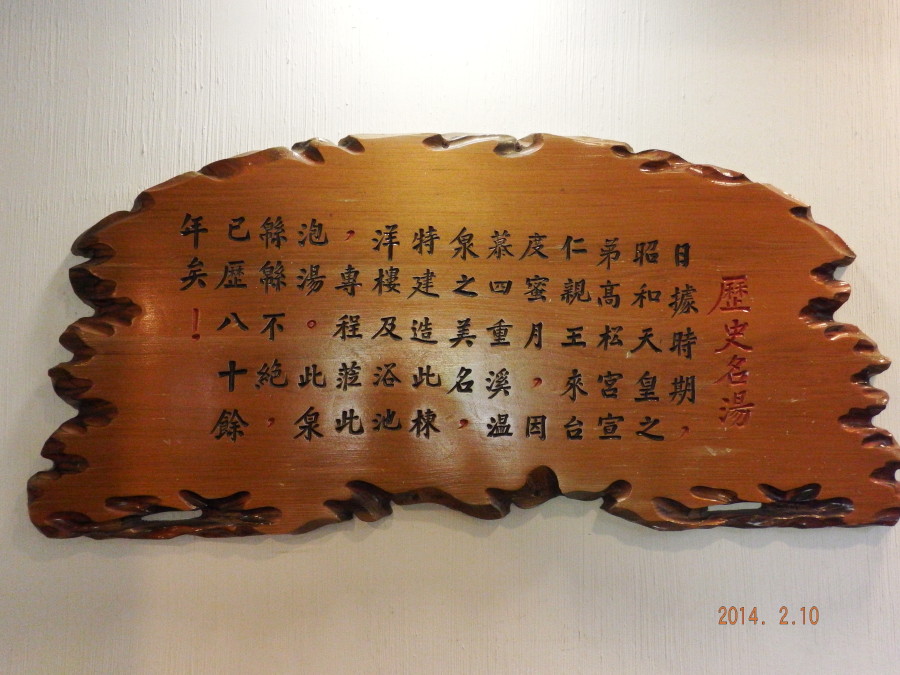 歷史名湯
日據時期，
昭和天皇之
弟高松宮宣
仁親王來台
度蜜月，因
慕四重溪温
泉之美名，
特建造此棟
洋樓及浴池
，專程蒞此
泡湯。此泉
緜緜不絕，
已歷八十餘
年矣！
2014. 2.10